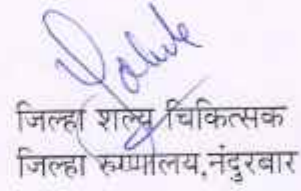 जिल्हा शल्य चिकित्सक
जिल्हा रुग्णालय,नंदुरबार